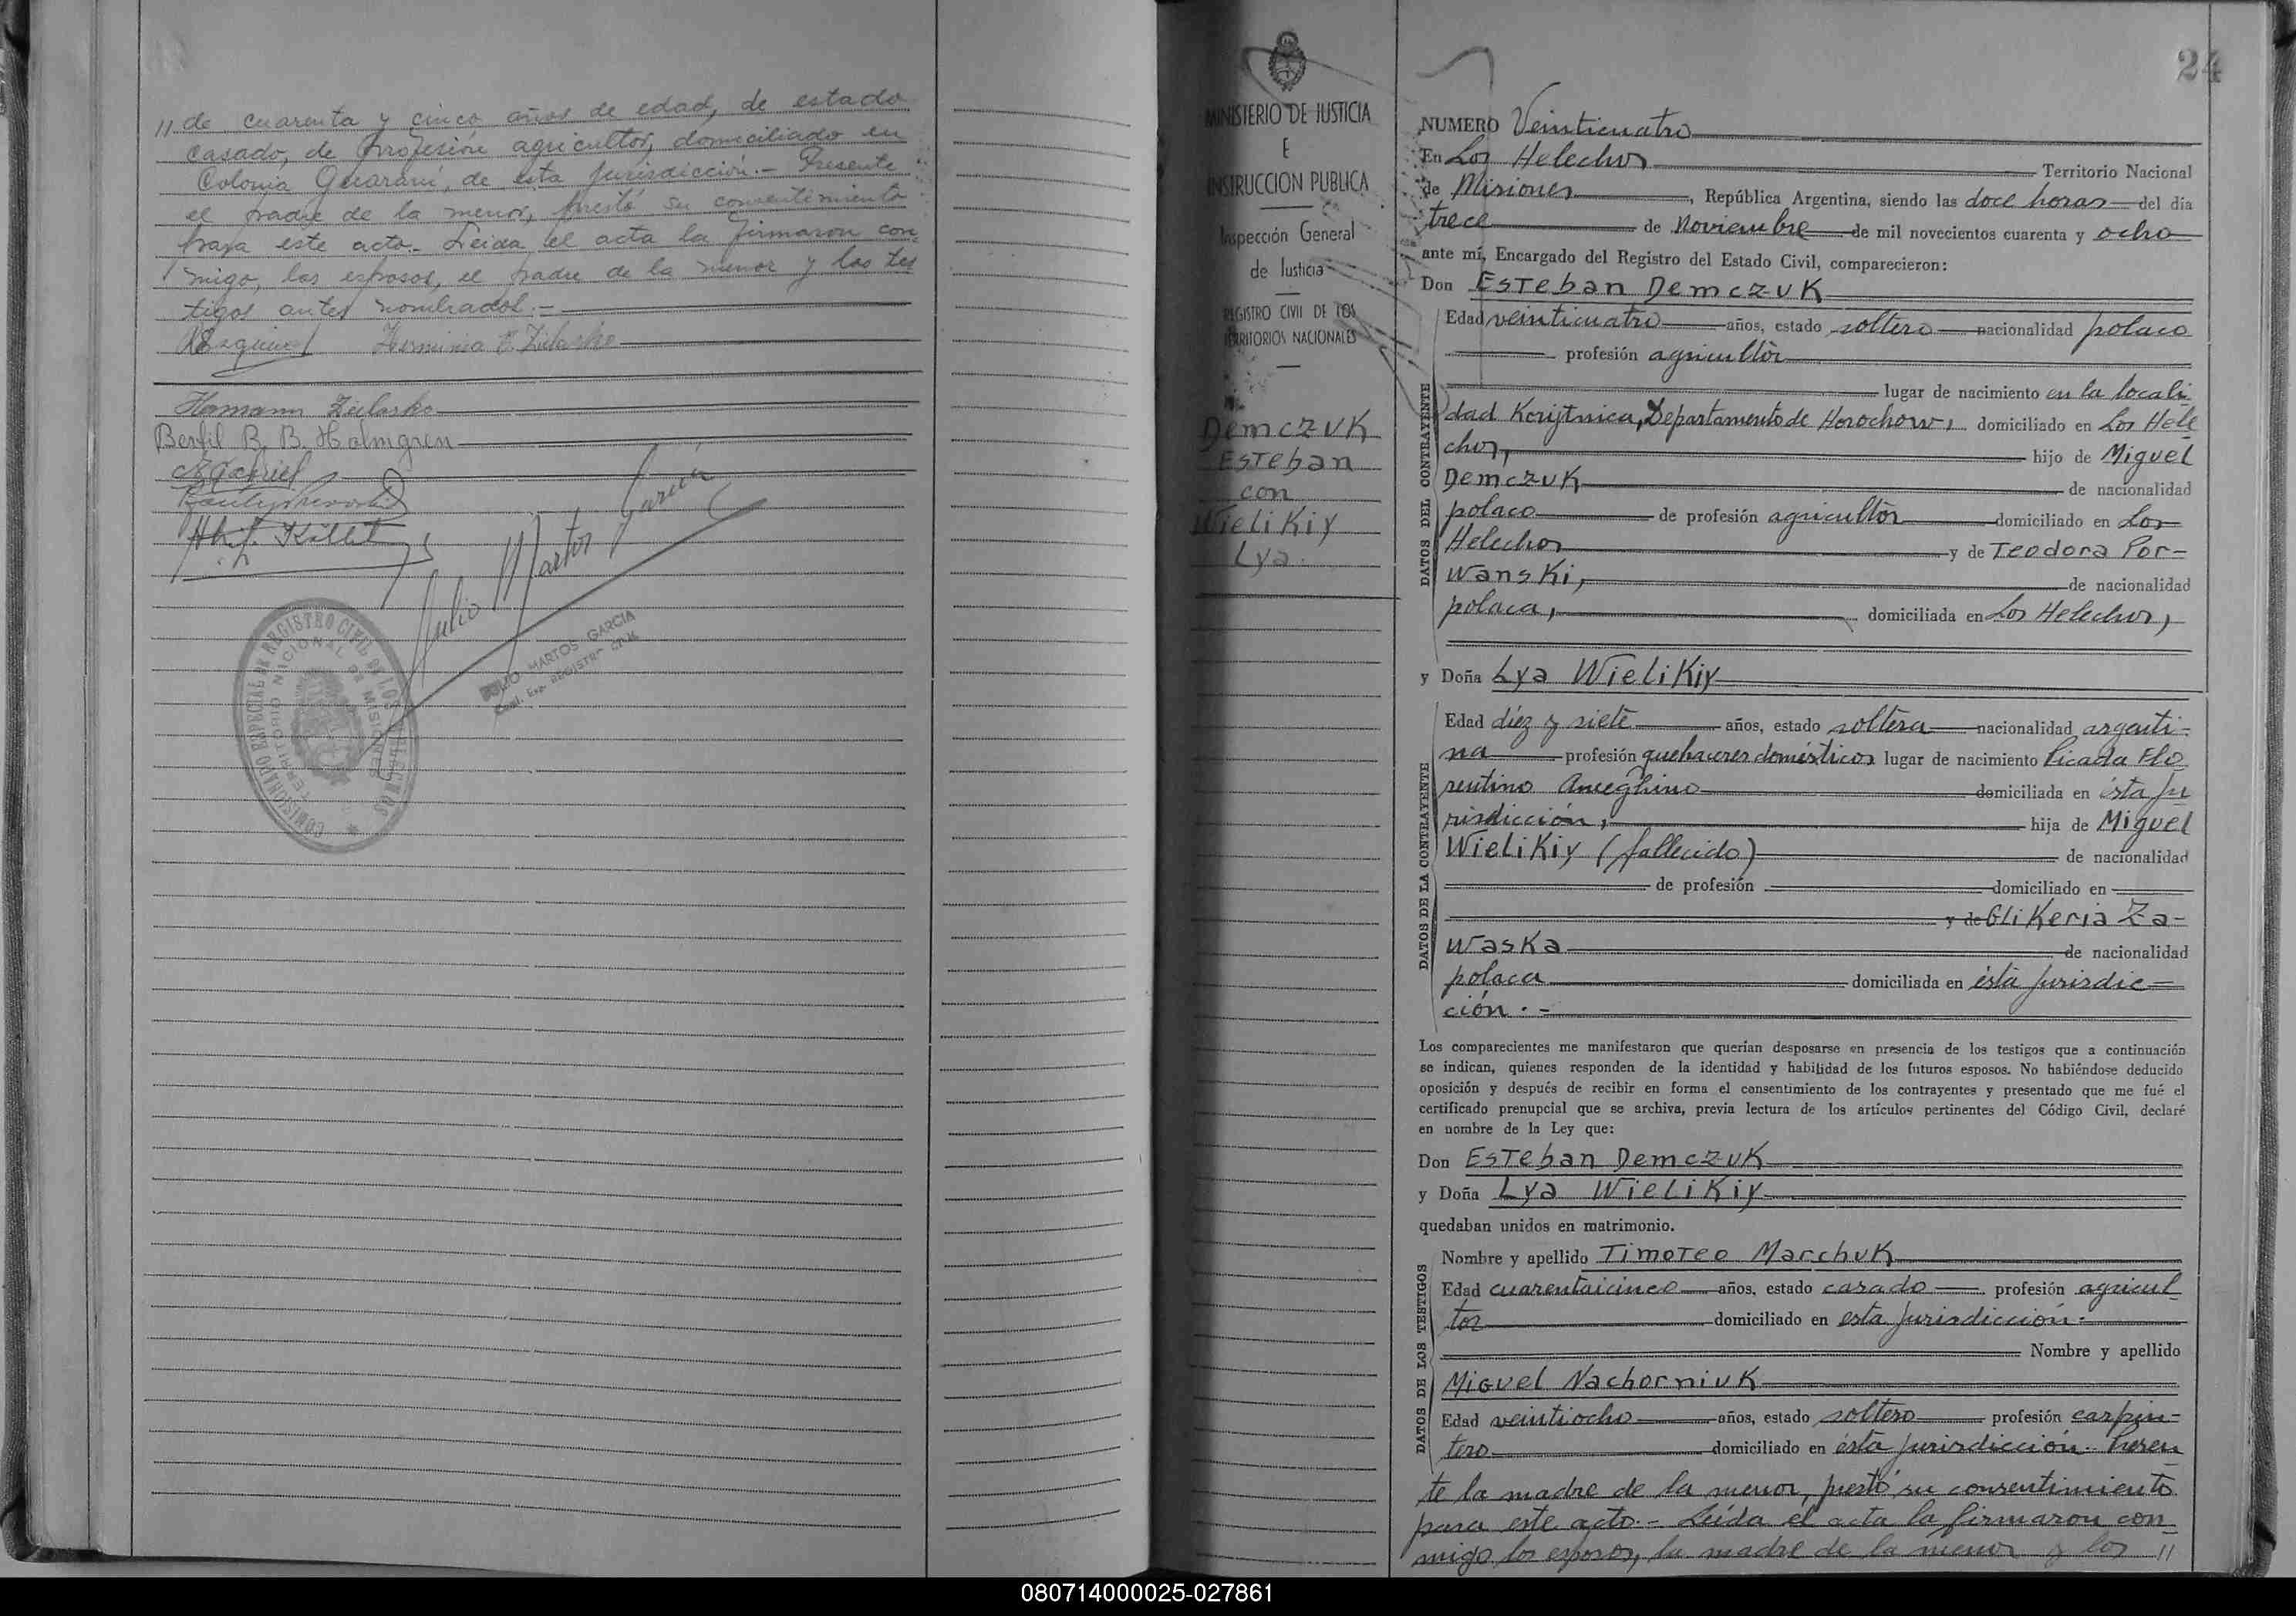 // de cuarenta y cinco años de edad, de estado
casado, de profesión agricultor, domiciliado en
Colonia Guaraní, de esta jurisdicción.- Presente
el padre de la menor, prestó su consentimiento
para este acto.- Leída el acta la firmaron con
migo, los esposos, el padre de la menor y los tes
tigos antes nombrados.-
Herminia E. Zielasko
Hermann Zielasko
Bertil B. B. Holmgren
Julio Martos García
COMISIONADO ESPECIAL DE REGISTRO CIVIL DE LOS
TERRITORIO NACIONAL DE MISIONES
JULIO MARTOS GARCIA
REGISTRO CIVIL
MINISTERIO DE JUSTICIA
E
INSTRUCCION PUBLICA
Inspección General
de Justicia
REGISTRO CIVIL DE LOS
TERRITORIOS NACIONALES
Demczuk
Esteban
con
Wielikiy
Lya.
24
NUMERO Veinticuatro
En Los Helechos Territorio Nacional
de Misiones, República Argentina, siendo las doce horas del día
trece de Noviembre de mil novecientos cuarenta y ocho
ante mí, Encargado del Registro del Estado Civil, comparecieron:
Don Esteban Demczuk
Edad veinticuatro años, estado soltero nacionalidad polaco
profesión agricultor
lugar de nacimiento en la locali
dad Korijtnica, Departamento de Horochow, domiciliado en Los Hele
chos, hijo de Miguel
Demczuk de nacionalidad
polaco de profesión agricultor domiciliado en Los
Helechos y de Teodora Por-
wanski, de nacionalidad
polaca, domiciliada en Los Helechos,
y Doña Lya Wielikiy
Edad diez y siete años, estado soltera nacionalidad argenti-
na profesión quehaceres domésticos lugar de nacimiento Picada Flo
rentino Ameghino domiciliada en ésta ju
risdicción, hija de Miguel
Wielikiy (fallecido) de nacionalidad
de profesión domiciliado en
y de Glikeria Za-
waska de nacionalidad
polaca domiciliada en ésta jurisdic-
ción.-
DATOS DEL CONTRAYENTE
DATOS DE LA CONTRAYENTE
Los comparecientes me manifestaron que querían desposarse en presencia de los testigos que a continuación
se indican, quienes responden de la identidad y habilidad de los futuros esposos. No habiéndose deducido
oposición y después de recibir en forma el consentimiento de los contrayentes y presentado que me fué el
certificado prenupcial que se archiva, previa lectura de los artículos pertinentes del Código Civil, declaré
en nombre de la Ley que:
Don Esteban Demczuk
y Doña Lya Wielikiy
quedaban unidos en matrimonio.
DATOS DE LOS TESTIGOS
Nombre y apellido Timoteo Marchuk
Edad cuarentaicinco años, estado casado profesión agricul
tor domiciliado en esta jurisdicción.
Nombre y apellido
Miguel Nachorniuk
Edad veintiocho años, estado soltero profesión carpin-
tero domiciliado en ésta jurisdicción. Presen
te la madre de la menor, prestó su consentimiento
para este acto.- Leída el acta la firmaron con
migo los esposos, la madre de la menor y los //
080714000025-027861